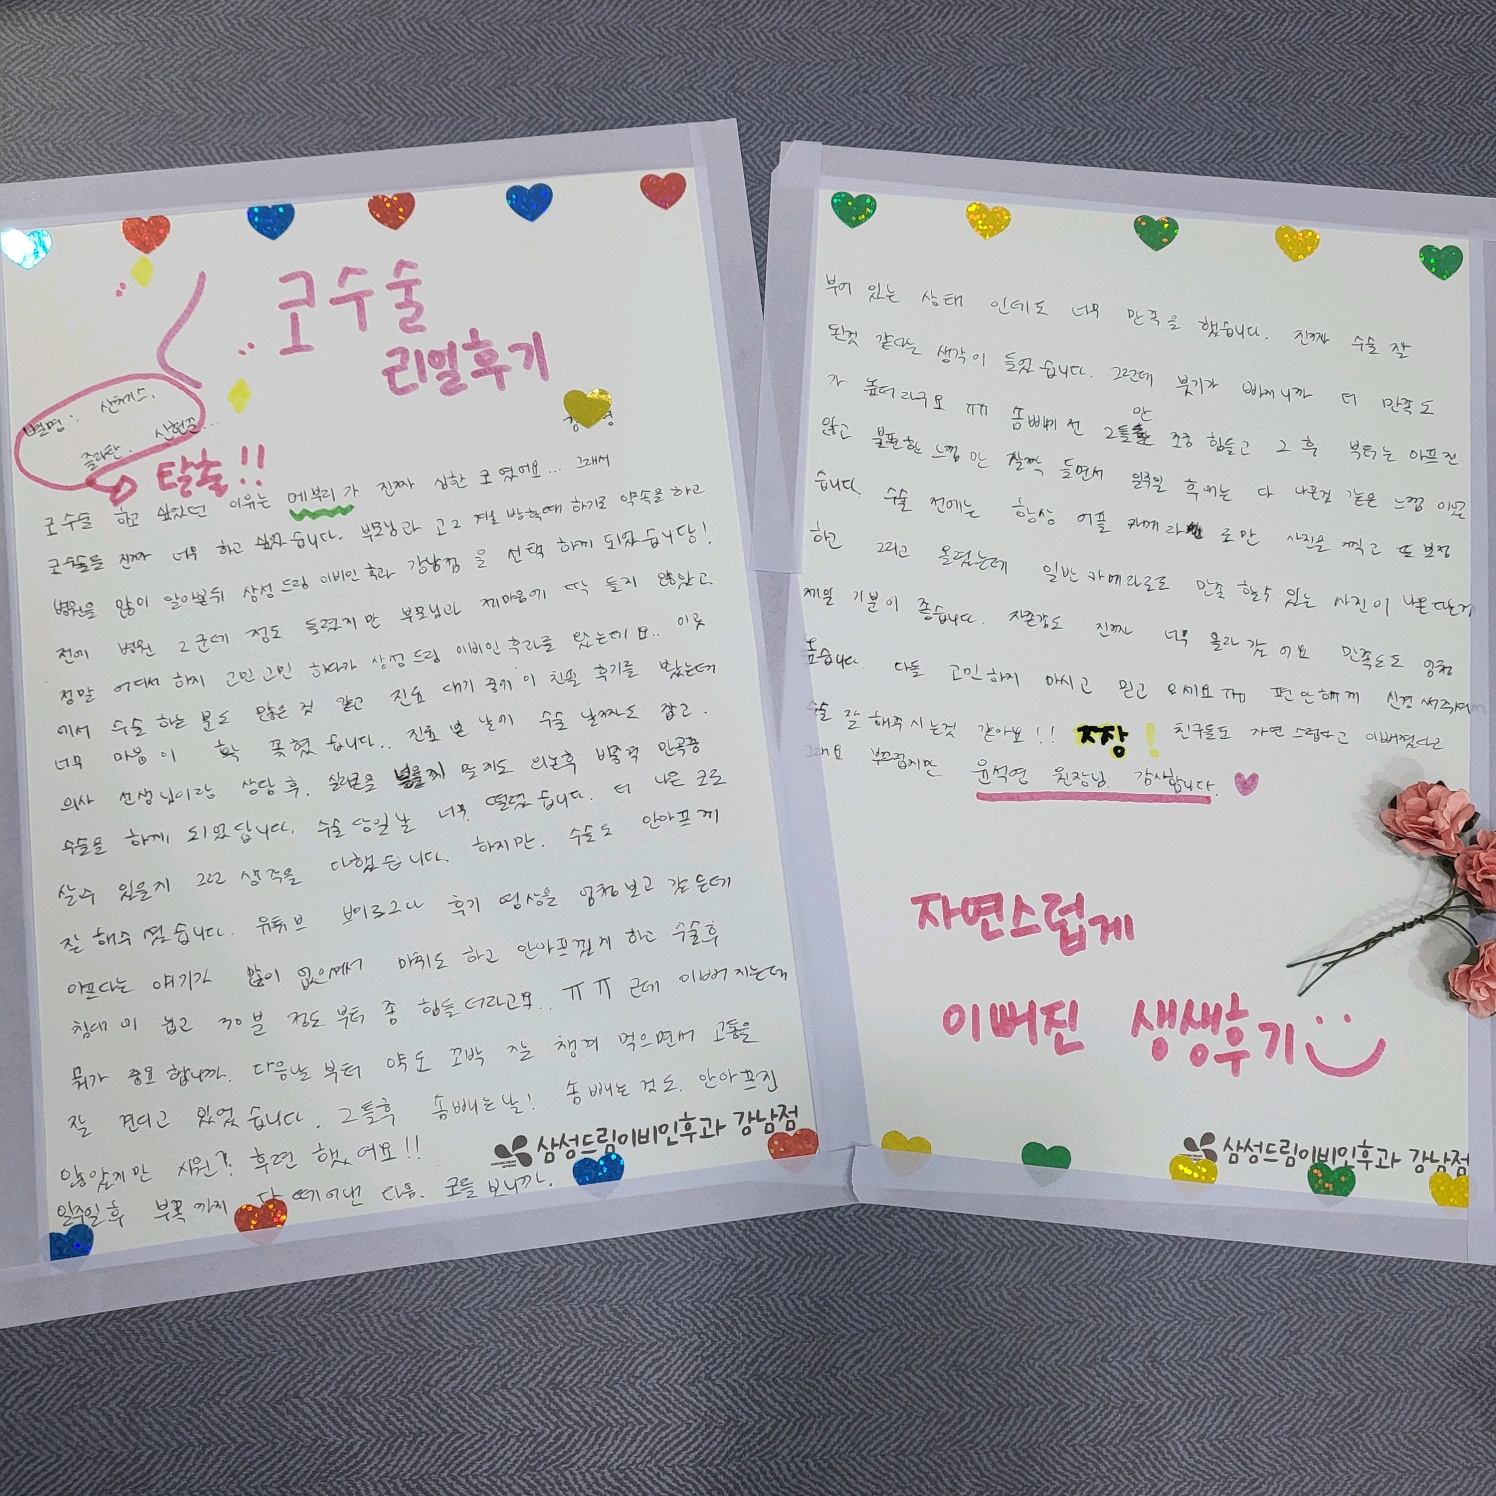 코수술
리얼후기
별명 : 산체스,
즐라탄. 산현준...
탈출!!
코 수술 하고 싶었던 이유는 메부리가 진짜 심한 코였어요... 그래서
코수술을 진짜 너무 하고 싶었습니다. 부모님과 고2 겨울 방학때 하기로 약속을 하고
병원을 많이 알아본뒤 삼성드림 이비인후과 강남점 을 선택 하게 되었습니당!
전에 병원 2군데 정도 들렸지만 부모님과 제마음에 딱 들지 않았고
정말 어디서 하지 고민고민 하다가 삼성드림 이비인후과를 왔는데요.. 이곳
에서 수술 하는 분도 많은 것 같고 진료 대기 중에 이 친필 후기를 봤는데
너무 마음이 확 꽂혔습니다.. 진료 본 날에 수술 날짜도 잡고.
의사 선생님이랑 상담 후, 실리콘을 넣을지 말지도 의논후 비중격 만곡증
수술을 하게 되었답니다. 수술 당일날 너무 떨렸습니다. 더 나은 코로
살수 있을지 그런 생각을 다했습니다. 하지만. 수술도 안아프게
잘 해주셨습니다. 유튜브 브이로그나 후기 영상을 엄청보고 갔는데
아프다는 얘기가 많이 있으면서 마취도 하고 안아프길게 하고 수술후
침대에 눕고 30분 정도 부터 좀 힘들더라고요.. ㅠㅠ 근데 이뻐지는데
뭐가 중요합니까. 다음날 부터 약도 꼬박 잘 챙겨 먹으면서 고통을
잘 견디고 있었습니다. 그틀후 솜빼는날! 솜 빼는 것도. 안아프진
않았지만 시원? 후련 했어요!!
일주일후 부목 까지 다 떼어낸 다음. 코를 보니까.
삼성드림이비인후과 강남점
부어 있는 상태 인데도 너무 만족을 했습니다. 진짜 수술 잘
된것 같다는 생각이 들었습니다. 그런데 붓기가 빠지니까 더 만족도
가 높더라구요 ㅠㅠ 솜빼기 전 2틀만 조금 힘들고 그 후 부터는 아프진
않고 불편한 느낌 만 살짝 들면서 일주일 후에는 다 나은것 같은 느낌 이었
습니다. 수술 전에는 항상 어플 카메라로만 사진을 찍고 또 보정
하고 그리고 올렸는데 일반 카메라로도 만족 할수 있는 사진이 나온다는게
제일 기분이 좋습니다. 자존감도 진짜 너무 올라감 이요 만족도도 엄청
높습니다. 다들 고민하지 마시고 믿고 오세요 편안하게 신경 써주셔서
수술 잘 해주시는것 같아요!! 짱! 친구들도 자연 스럽다고 이뻐졌다고
그래요 부끄럽지만 윤석영 원장님. 감사합니다.
자연스럽게
이뻐진 생생후기
삼성드림이비인후과 강남점